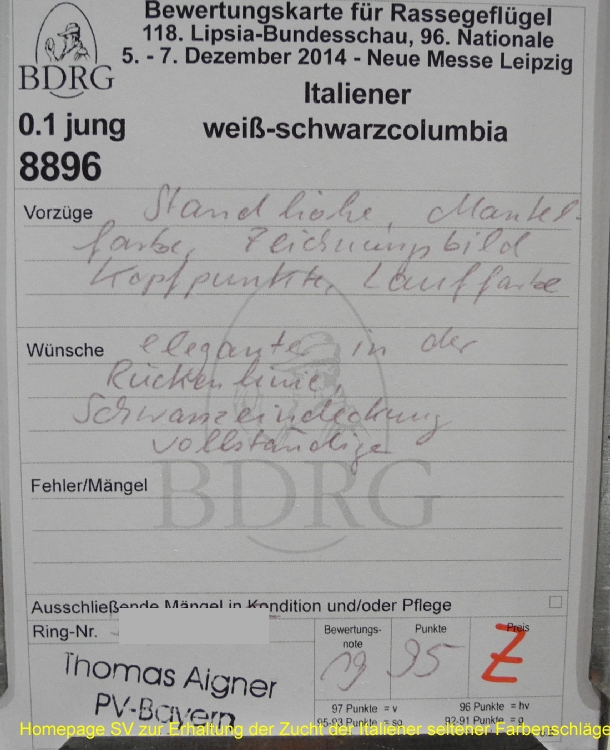 Bewertungskarte für Rassegeflügel
118. Lipsia-Bundesschau, 96. Nationale
5. - 7. Dezember 2014 - Neue Messe Leipzig
BDRG
Italiener
0.1 jung weiß-schwarzcolumbia
8896
Vorzüge Standhöhe, Mantel-
farbe, Zeichnungsbild
Kopfpunkte, Lauffarbe
Wünsche eleganter in der
Rückenlinie,
Schwanzeindeckung
vollständiger
BDRG
Fehler/Mängel
Ausschließende Mängel in Kondition und/oder Pflege
Ring-Nr.
Bewertungs-
note
Punkte
Preis
95 Z
Thomas Aigner
PV-Bayern
97 Punkte = v 96 Punkte = hv
95-93 Punkte = sg 92-91 Punkte = g
Homepage SV zur Erhaltung der Zucht der Italiener seltener Farbenschläge